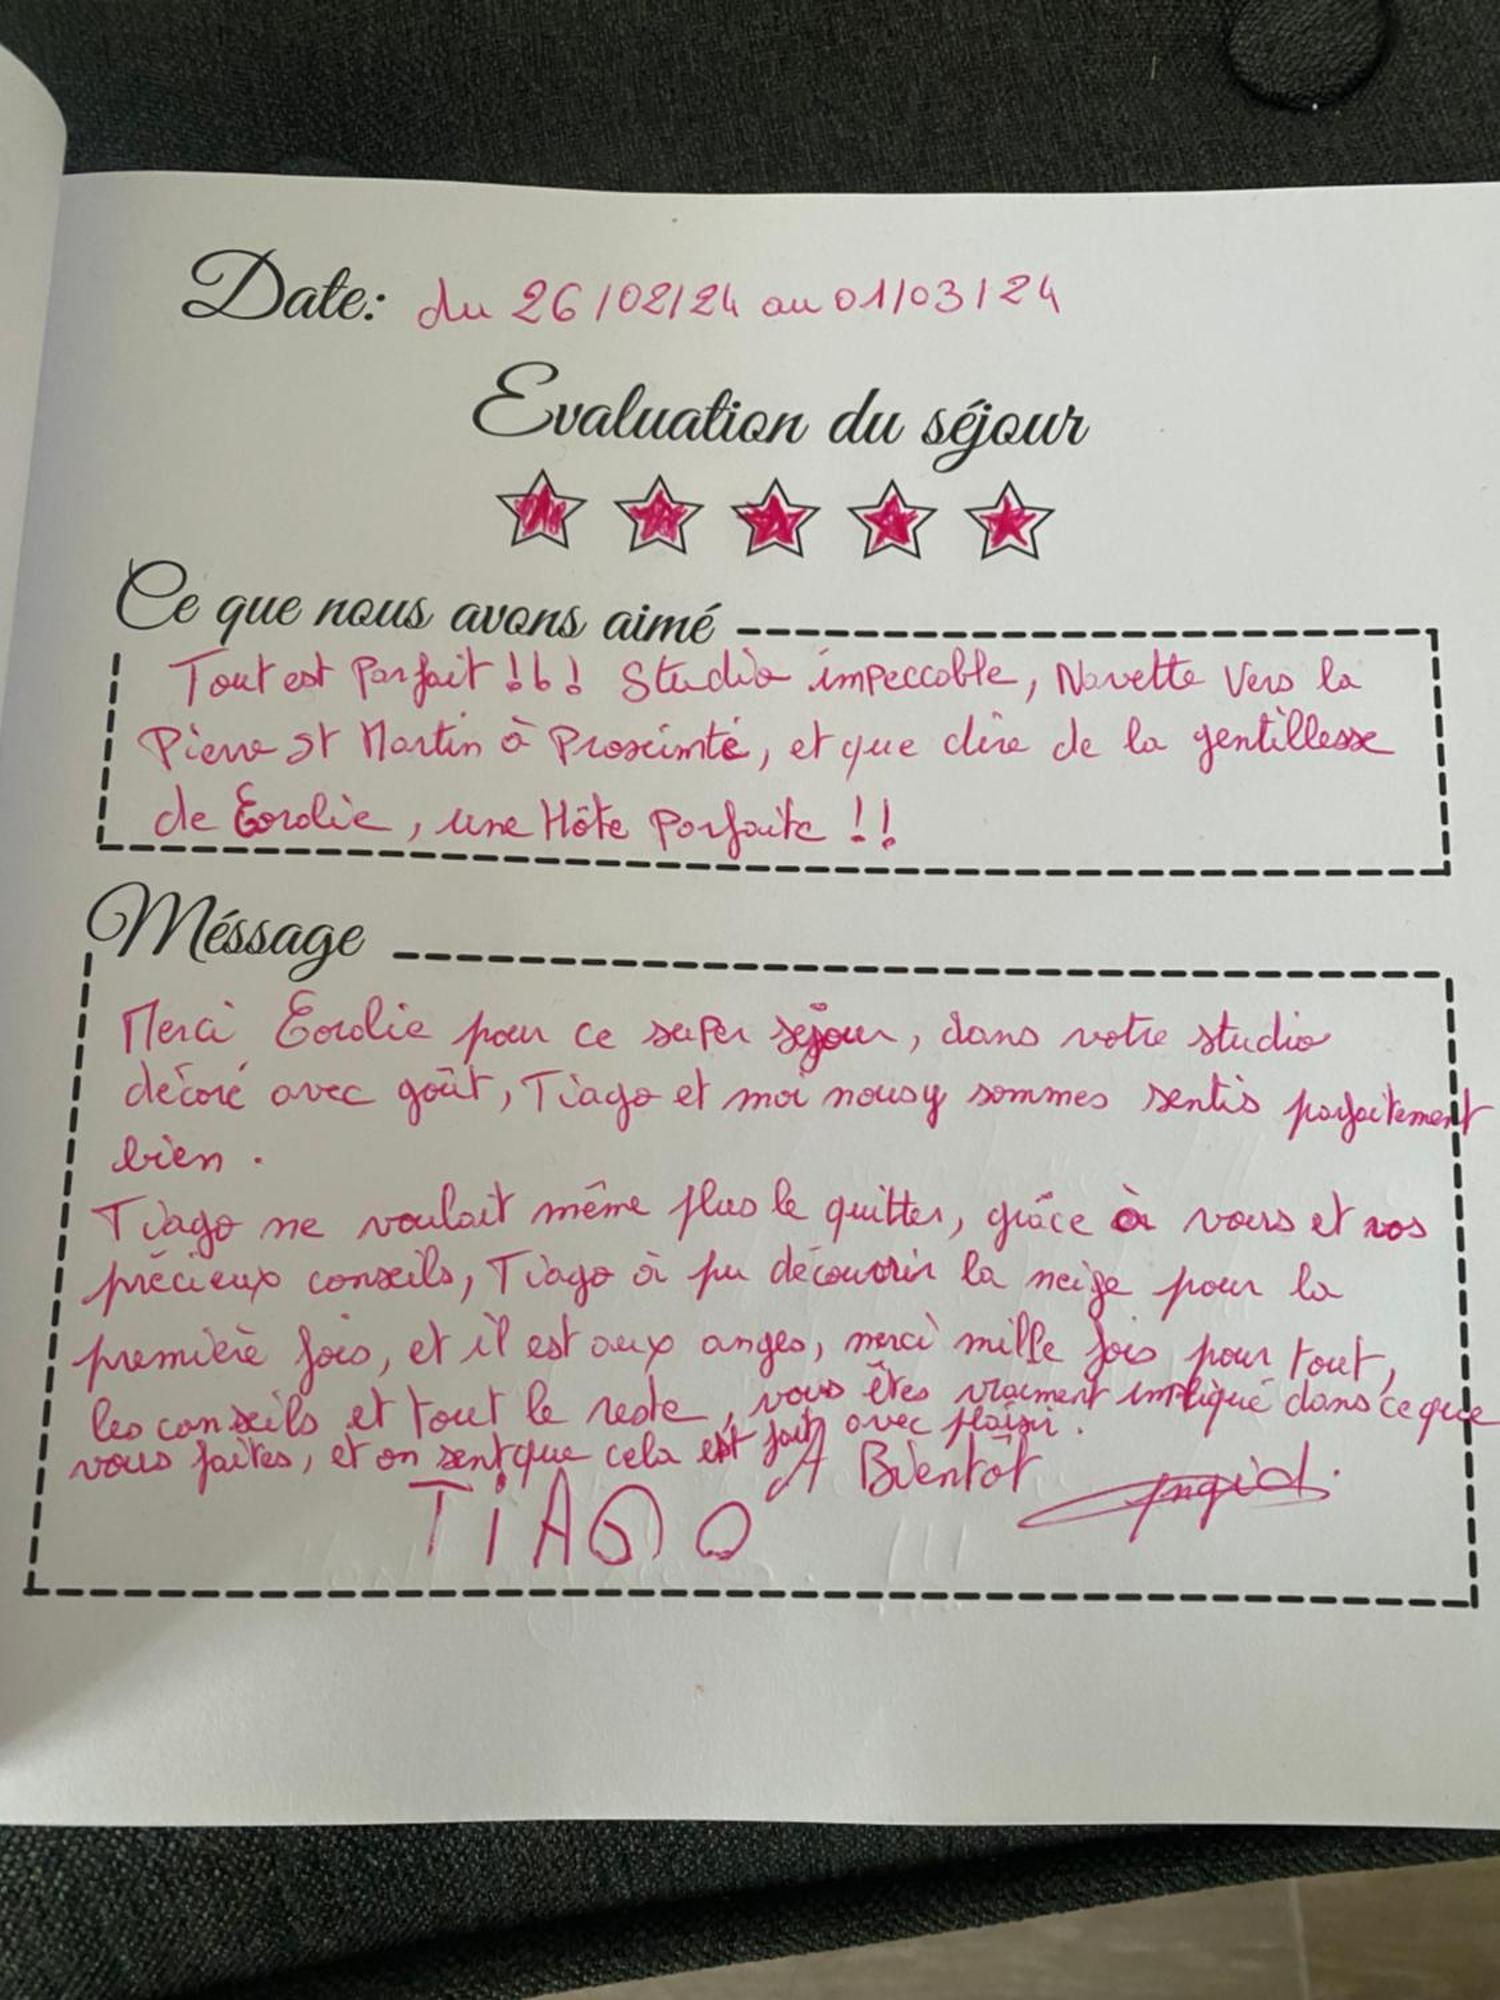 Date: du 26/02/24 au 01/03/24
Evaluation du séjour
Ce que nous avons aimé
Tout est Parfait !!! Studio impeccable, Navette Vers la
Pierre St Martin à Proximté, et que dire de la gentillesse
de Eorolie, une Hôte Parfaite !!
Méssage
Merci Eorolie pour ce super séjour, dans votre studio
décoré avec goût, Tiago et moi nous y sommes sentis parfaitement
bien.
Tiago ne voulait même plus le quitter, grâce à vous et vos
précieux conseils, Tiago à pu découvrir la neige pour la
première fois, et il est aux anges, merci mille fois pour tout,
les conseils et tout le reste, vous êtes vraiment impliqué dans ce que
vous faites, et on sent que cela est fait avec plaisir.
A Bientot Ingrid.
TiAGO